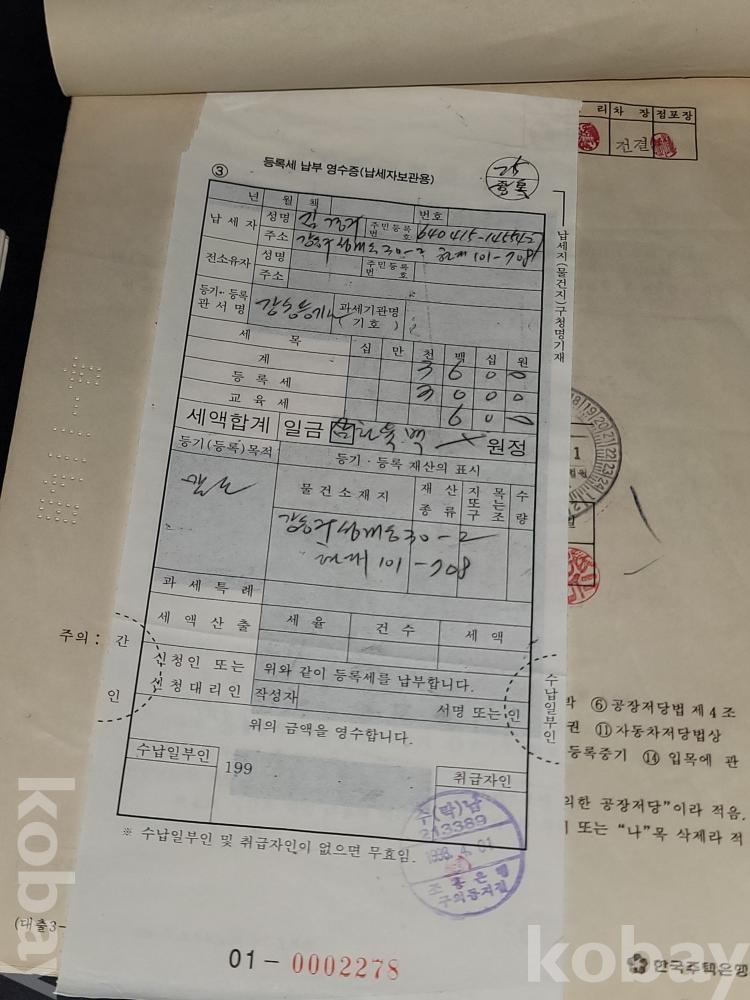 리 차 장 점포장
전결
③ 등록세 납부 영수증(납세자보관용)
년 월 책 번호
납세자 성명 주민등록번호
주소 30-2 101-708
전소유자 성명 주민등록번호
주소
등기·등록관서명 과세기관명(기호)
세 목 십 만 천 백 십 원
계 3 6 0 0
등록세 3 0 0 0
교육세 6 0 0
세액합계 일금 원정
등기(등록)목적 등기·등록 재산의 표시
물건소재지 재산종류 지목또는구조 수량
30-2
101-708
과세특례
세액산출 세율 건수 세액
신청인 또는 신청대리인 위와 같이 등록세를 납부합니다.
작성자 서명 또는 인
위의 금액을 영수합니다.
수납일부인 199 취급자인
※ 수납일부인 및 취급자인이 없으면 무효임.
수(탁)납
213389
1998. 4. 01
조흥은행
01-0002278
납세지(물건지)구청명기재
수납일부인
주의 : 간
인
⑥ 공장저당법 제4조
권 ⑪ 자동차저당법상
등록중기 ⑭ 입목에 관
의한 공장저당"이라 적음.
또는 "나"목 삭제라 적
(대출3-
한국주택은행
kobay
kobay
kobay